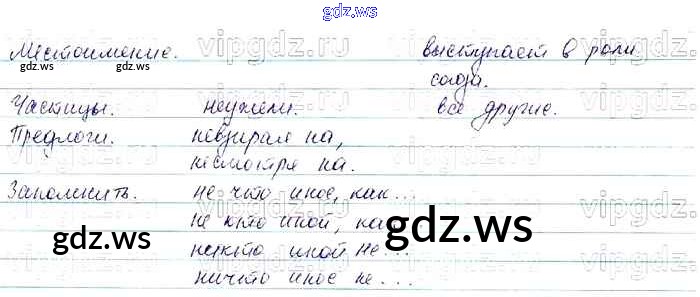 gdz.ws
Местоимение. выступает в роли
союза.
Частицы. неужели. все другие.
Предлоги. невзирая на,
несмотря на.
Запомнить. не что иное, как...
не кто иной, как
никто иной не...
ничто иное не...
gdz.ws
gdz.ws
gdz.ws
gdz.ws
vipgdz.ru
vipgdz.ru
vipgdz.ru
vipgdz.ru